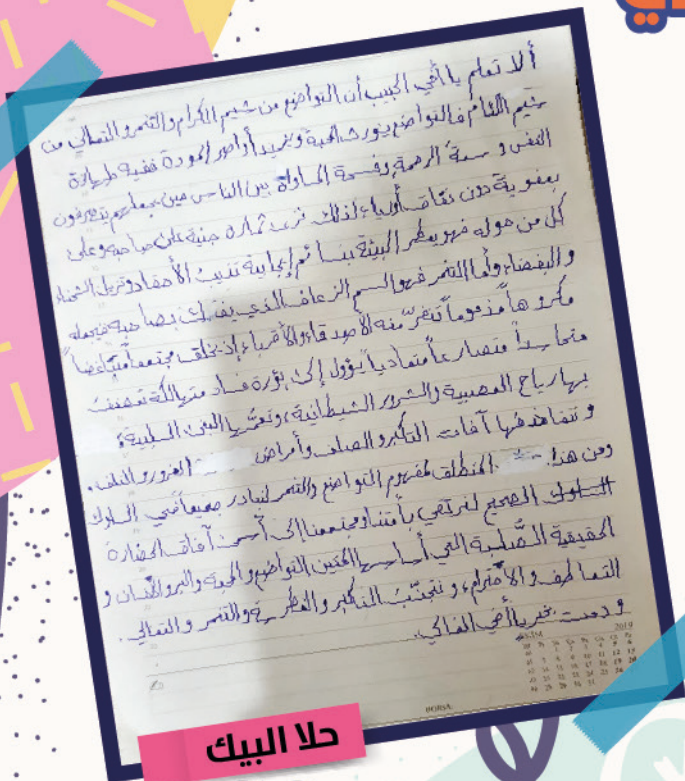 ألا تعلم يا أخي الحبيب أن التواضع من شيم الكرام والتنمر والتعالي من
شيم اللئام فالتواضع يورث المحبة ويمد أواصر المودة ففيه طهارة
النفس و سمة الرحمة وفسحة المساواة بين الناس حين يجعلهم يتصرفون
بعفوية دون نفاق أو رياء لذلك ترى ثماره جنية على صاحبه وعلى
كل من حوله فهو يعطر البيئة بنسائم إيجابية تذيب الأحقاد وتزيل الشحناء
والبغضاء وأما التنمر فهو السم الزعاف الذي يفتك بصاحبه فيجعله
مكروهاً مذموماً تنفر منه الأصدقاء والأقرباء إذ يخلق مجتمعاً متباغضاً
متحاسداً متصارعاً متمادياً يؤول إلى بؤرة فساد متهالكة تعصف
بها رياح العصبية والشرور الشيطانية، وتعتريها السلبية،
و تتقاذفها آفات التكبر والصلف وأمراض الغرور والتخلف.
ومن هذا المنطلق لمفهوم التواضع والتنمر لنبادر جميعاً في السلوك
السلوك الصحيح لنرتقي بأمتنا ومجتمعنا إلى أسمى آفاق الحضارة
الحقيقية الصلبة التي أساسها المتين التواضع والمحبة والبر والإحسان و
التعاطف والاحترام، و نتجنب التكبر والغطرسة والتنمر والتعالي.
و دمت بخير يا أخي الغالي.
2019
BORSA
حلا البيك